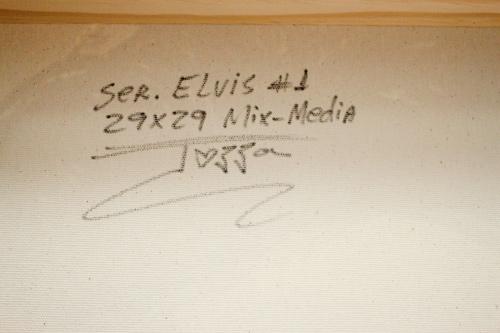 Ser. Elvis #1
29x29 Mix-Media
Tozza